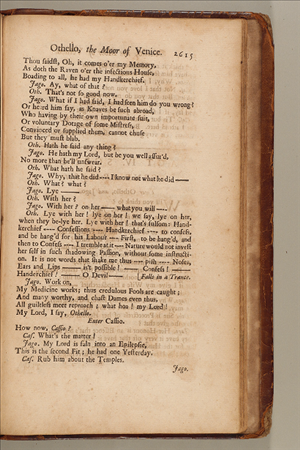 Othello, the Moor of Venice. 2615
Thou saidst, Oh, it comes o'er my Memory,
As doth the Raven o'er the infectious House,
Boading to all, he had my Handkerchief.
Jago. Ay, what of that?
Oth. That's not so good now.
Jago. What if I had said, I had seen him do you wrong?
Or heard him say, as Knaves be such abroad,
Who having by their own importunate suit,
Or voluntary Dotage of some Mistress,
Convinced or supplied them, cannot chuse
But they must blab.
Oth. Hath he said any thing?
Jago. He hath my Lord, but be you well assur'd,
No more than he'll unswear.
Oth. What hath he said?
Jago. Why, that he did ---- I know not what he did —
Oth. What? what?
Jago. Lye —
Oth. With her?
Jago. With her? on her — what you will —
Oth. Lye with her! lye on her! we say, lye on her,
when they be-lye her. Lye with her! that's fulsom: Hand-
kerchief ---- Confessions ---- Handkerchief ---- to confess,
and be hang'd for his Labour ---- First, to be hang'd, and
then to Confess ---- I tremble at it -- Nature would not invest
her self in such shadowing Passion, without some instructi-
on. It is not words that shake me thus --- pish ---- Noses,
Ears and Lips — is't possible! — Confess! —
Handkerchief! — O Devil — [Falls in a Trance.
Jago. Work on,
My Medicine works; thus credulous Fools are caught;
And many worthy, and chast Dames even thus,
All guiltless meet reproach: what hoa! my Lord!
My Lord, I say, Othello.
Enter Cassio.
How now, Cassio?
Cas. What's the matter?
Jago. My Lord is faln into an Epilepsie,
This is the second Fit; he had one Yesterday.
Cas. Rub him about the Temples.
Jago.